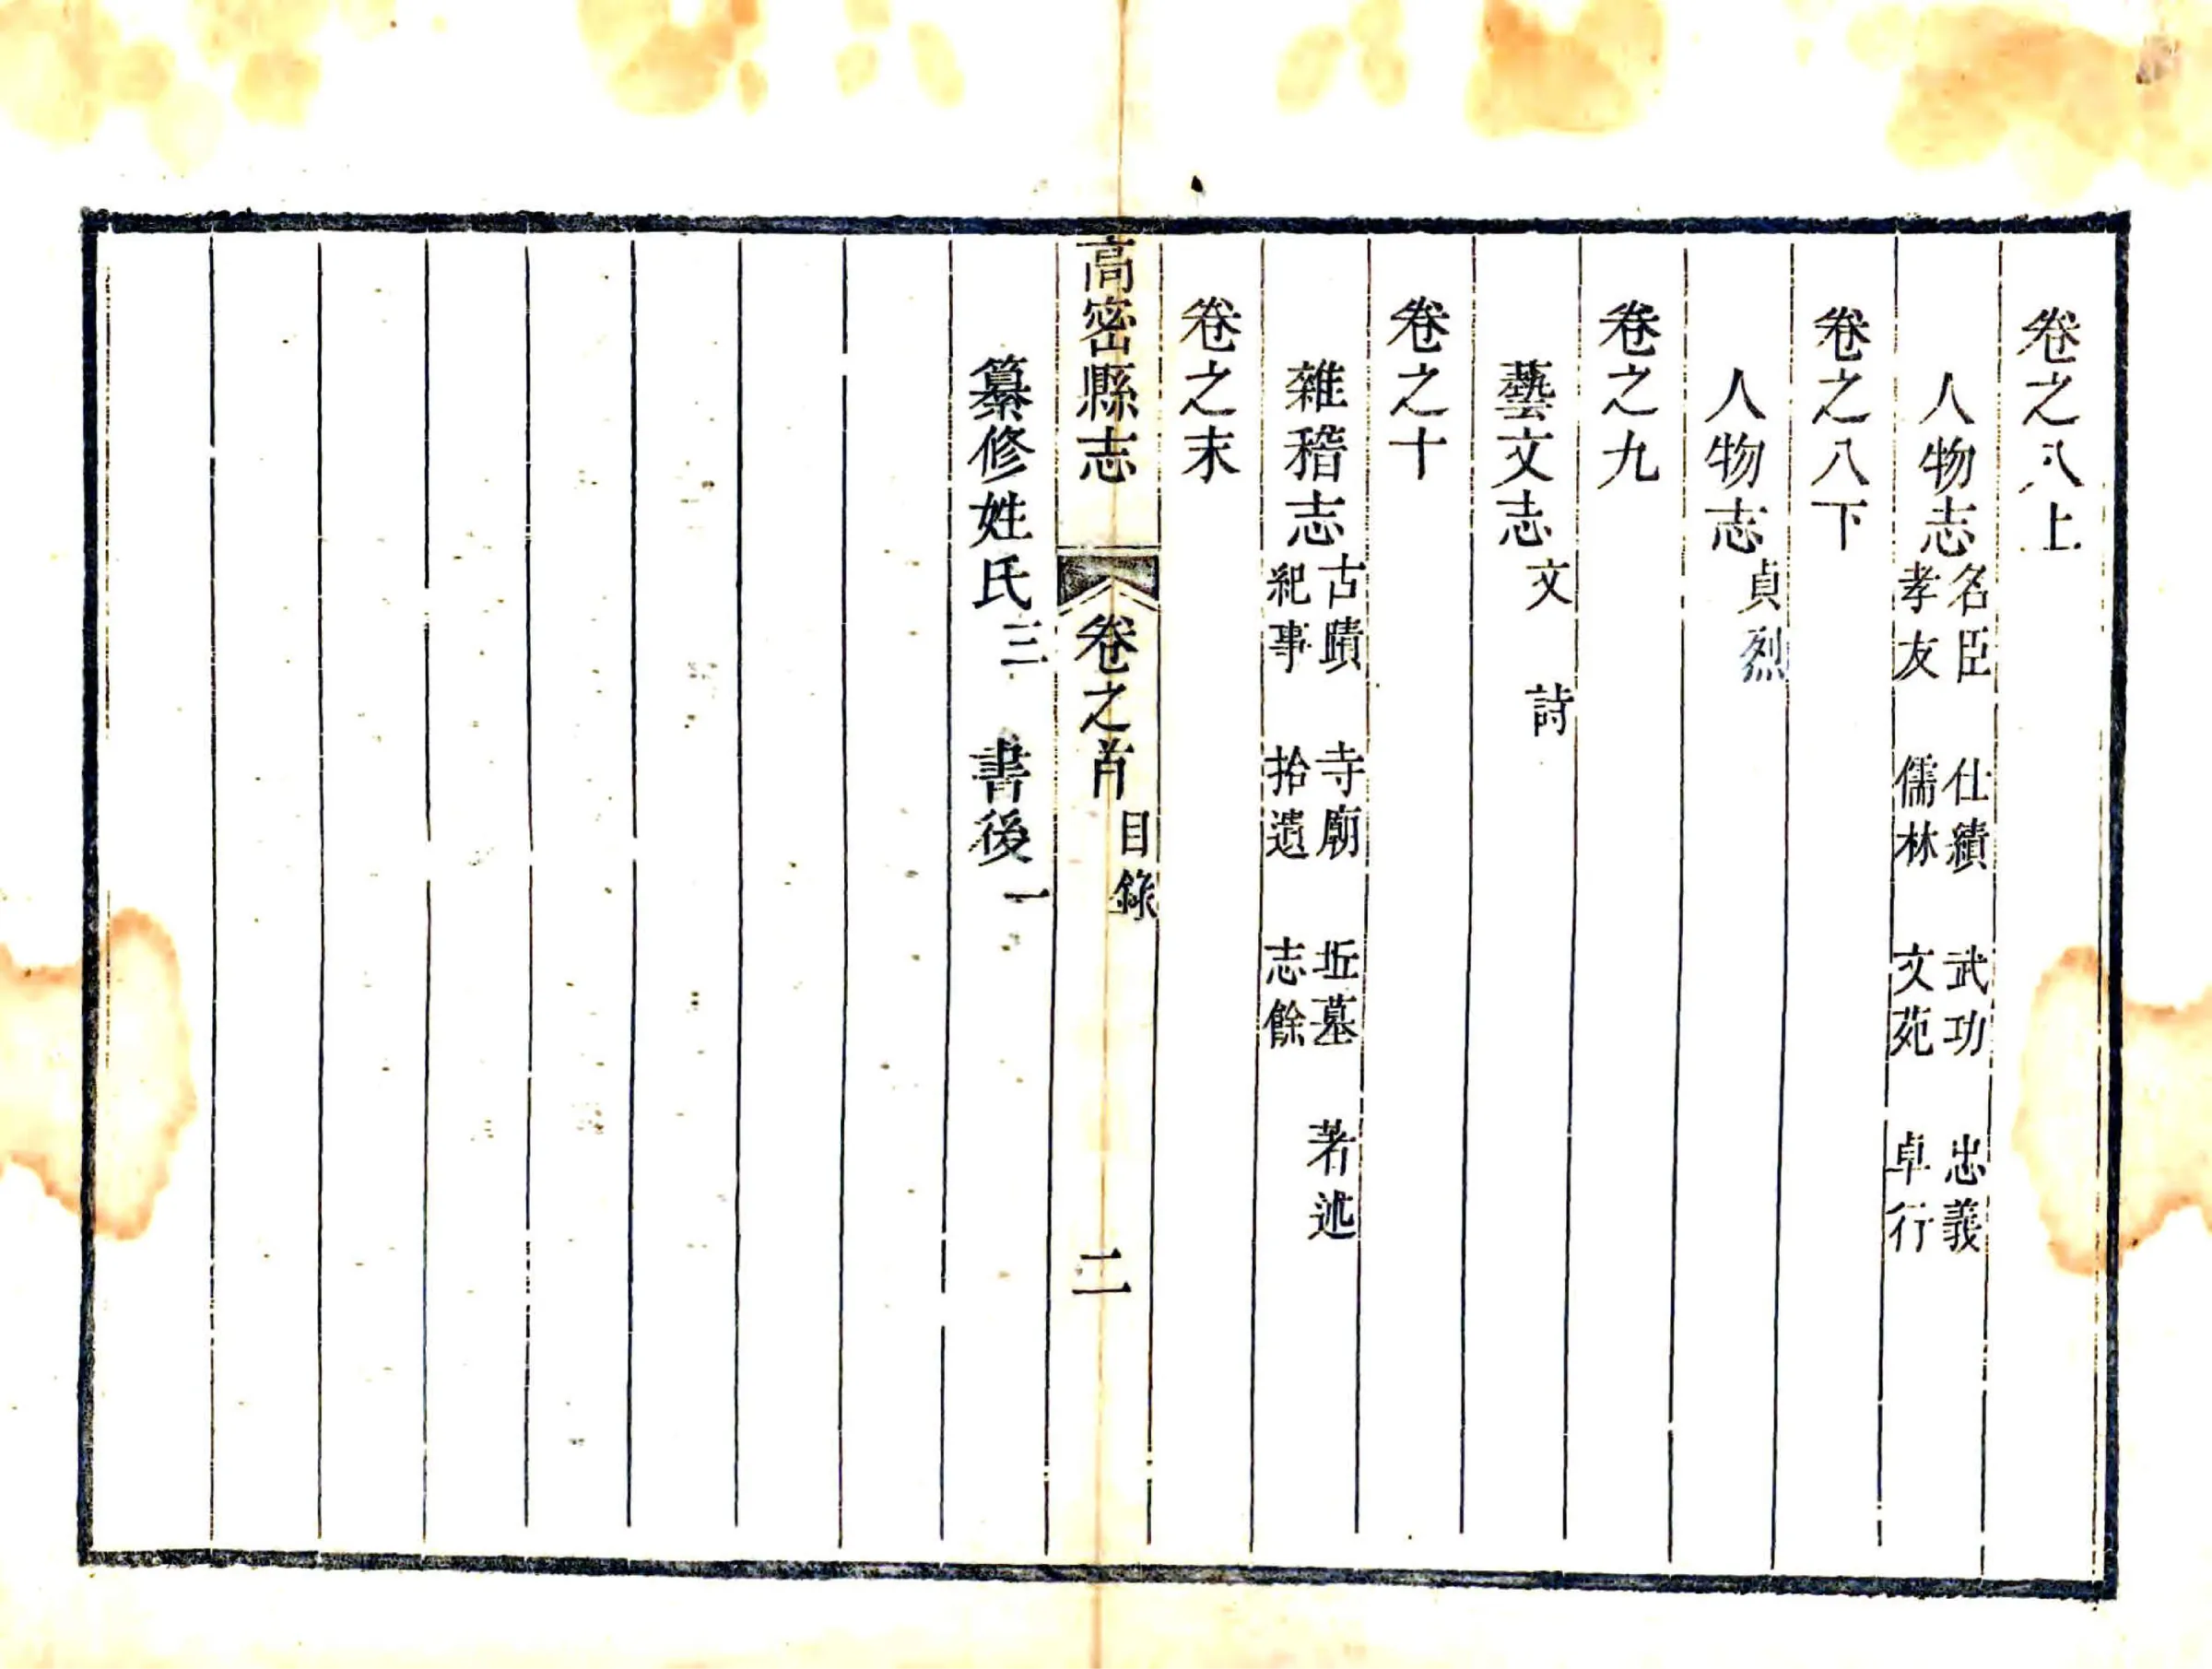 卷之八上
人物志
名臣　仕績　武功　忠義
孝友　儒林　文苑　卓行
卷之八下
人物志
貞烈
卷之九
藝文志
文　詩
卷之十
雜稽志
古蹟　寺廟　坵墓　著述
紀事　拾遺　志餘
卷之末
高密縣志　卷之首　目錄　二
纂修姓氏三　書後一